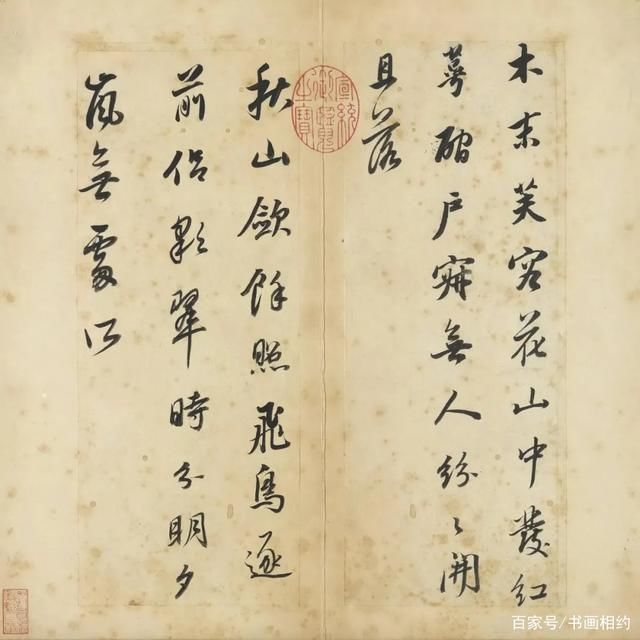 木末芙容花山中發紅
萼磵戶寂無人紛〻開
且落
秋山斂餘照飛鳥逐
前侶彩翠時分明夕
嵐無處所
宣統御覽之寶
百家号/书画相约